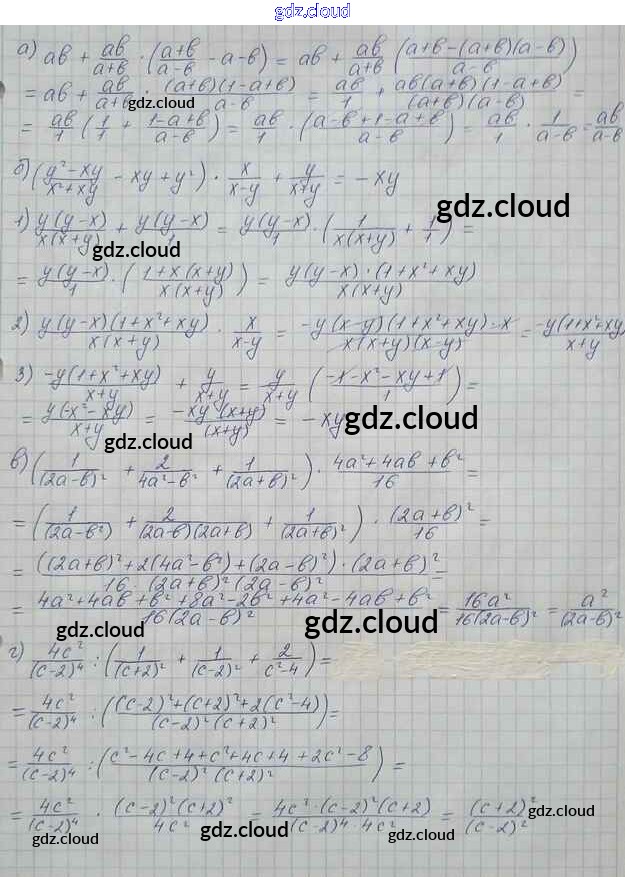 gdz.cloud
а) ab + ab/(a+b) · ((a+b)/(a-b) - a - b) = ab + ab/(a+b) ((a+b-(a+b)(a-b))/(a-b))
= ab + ab/(a+b) · ((a+b)(1-a+b))/(a-b) = ab/1 + (ab(a+b)(1-a+b))/((a+b)(a-b)) =
gdz.cloud
= ab/1 (1/1 + (1-a+b)/(a-b)) = ab/1 · ((a-b+1-a+b)/(a-b)) = ab/1 · 1/(a-b) = ab/(a-b)
б) ((y²-xy)/(x²+xy) - xy + y²) · x/(x-y) + y/(x+y) = -xy
gdz.cloud
1) (y(y-x))/(x(x+y)) + (y(y-x))/1 = (y(y-x))/1 · (1/(x(x+y)) + 1/1) =
gdz.cloud
= (y(y-x))/1 · ((1+x(x+y))/(x(x+y))) = (y(y-x)·(1+x²+xy))/(x(x+y))
2) (y(y-x)(1+x²+xy))/(x(x+y)) · x/(x-y) = (-y(x-y)(1+x²+xy)·x)/(x(x+y)(x-y)) = (-y(1+x²+xy)/(x+y)
3) (-y(1+x²+xy))/(x+y) + y/(x+y) = y/(x+y) ((-1-x²-xy+1)/1) =
= (y(-x²-xy))/(x+y) = (-xy(x+y))/((x+y)) = -xy
gdz.cloud
gdz.cloud
в) (1/(2a-b)² + 2/(4a²-b²) + 1/(2a+b)²) · (4a²+4ab+b²)/16 =
= (1/(2a-b²) + 2/((2a-b)(2a+b)) + 1/(2a+b)²) · (2a+b)²/16 =
gdz.cloud
= (((2a+b)²+2(4a²-b²)+(2a-b)²)·(2a+b)²)/(16·(2a+b)²(2a-b)²) =
= (4a²+4ab+b²+8a²-2b²+4a²-4ab+b²)/(16(2a-b)²) = 16a²/(16(2a-b)²) = a²/(2a-b)²
gdz.cloud
gdz.cloud
г) 4c²/(c-2)⁴ : (1/(c+2)² + 1/(c-2)² + 2/(c²-4)) =
= 4c²/(c-2)⁴ : (((c-2)²+(c+2)²+2(c²-4))/((c-2)²(c+2)²)) =
gdz.cloud
gdz.cloud
= 4c²/(c-2)⁴ : ((c²-4c+4+c²+4c+4+2c²-8)/((c-2)²(c+2)²)) =
= 4c²/(c-2)⁴ · ((c-2)²(c+2)²)/4c² = (4c²·(c-2)²(c+2))/((c-2)⁴·4c²) = (c+2)²/(c-2)²
gdz.cloud
gdz.cloud
gdz.cloud